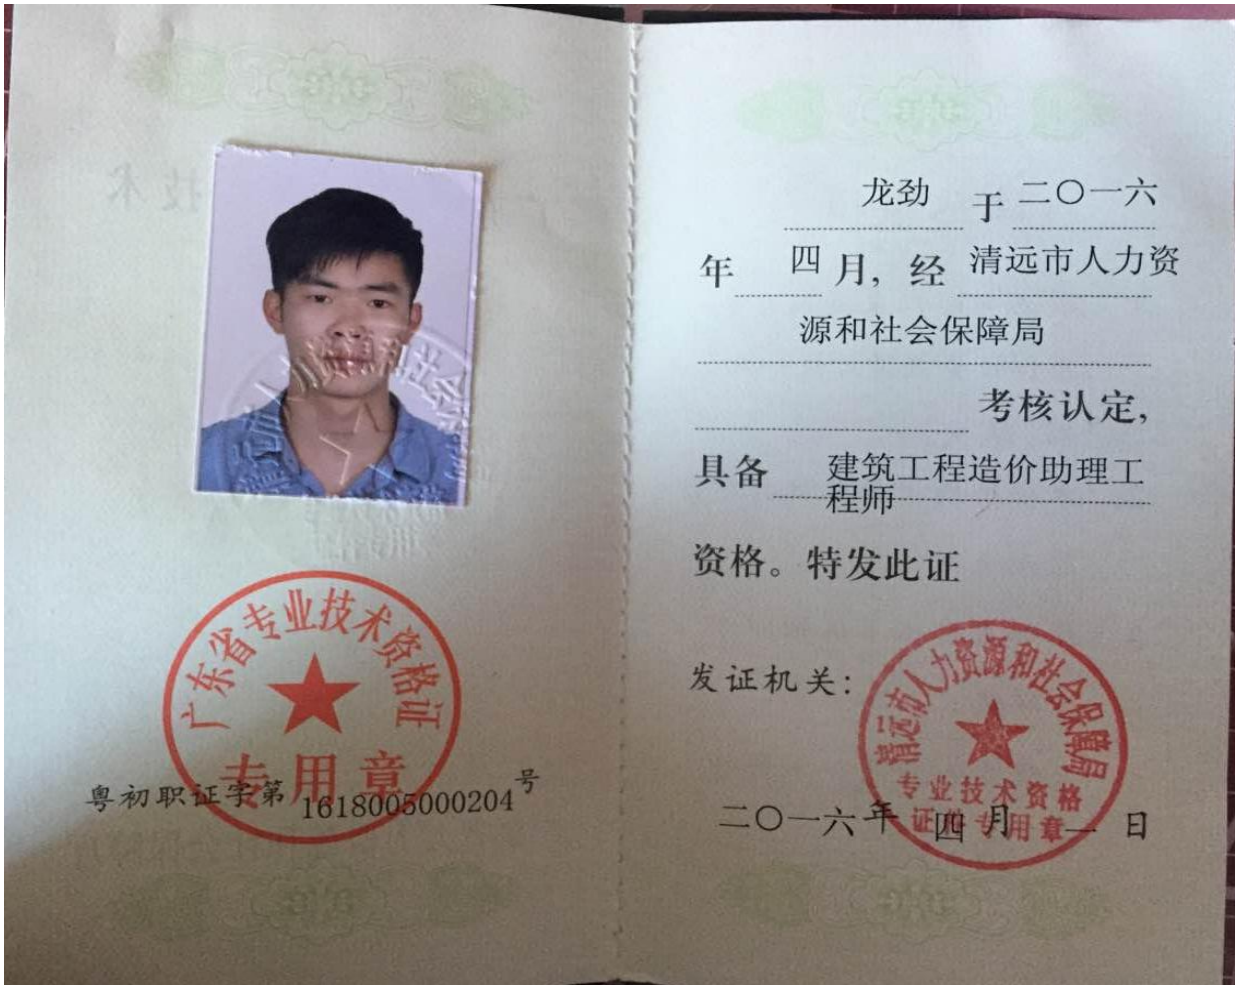 人力资源和社会
广东省专业技术资格证
专用章
粤初职证字第1618005000204号
龙劲 于 二〇一六
年 四 月, 经 清远市人力资
源和社会保障局
考核认定,
具备 建筑工程造价助理工
程师
资格。特发此证
发证机关:
清远市人力资源和社会保障局
专业技术资格
证件专用章
二〇一六年 四 月 一 日